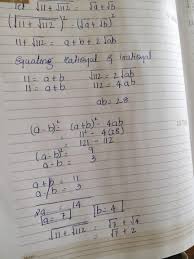 Let √11+√112 = √a+√b
(√11+√112)² = (√a+√b)²
11+√112 = a+b+2√ab
Equating rational & irrational
11 = a+b √112 = 2√ab
11 = a+b 112 = 4ab
ab = 28
(a-b)² = (a+b)² - 4ab
= 11² - 4(28)
= 121 - 112
(a-b)² = 9
a-b = 3
a+b = 11
a-b = 3
2a = 14
a = 7 b = 4
√11+√112 = √7 + √4
= √7 + 2